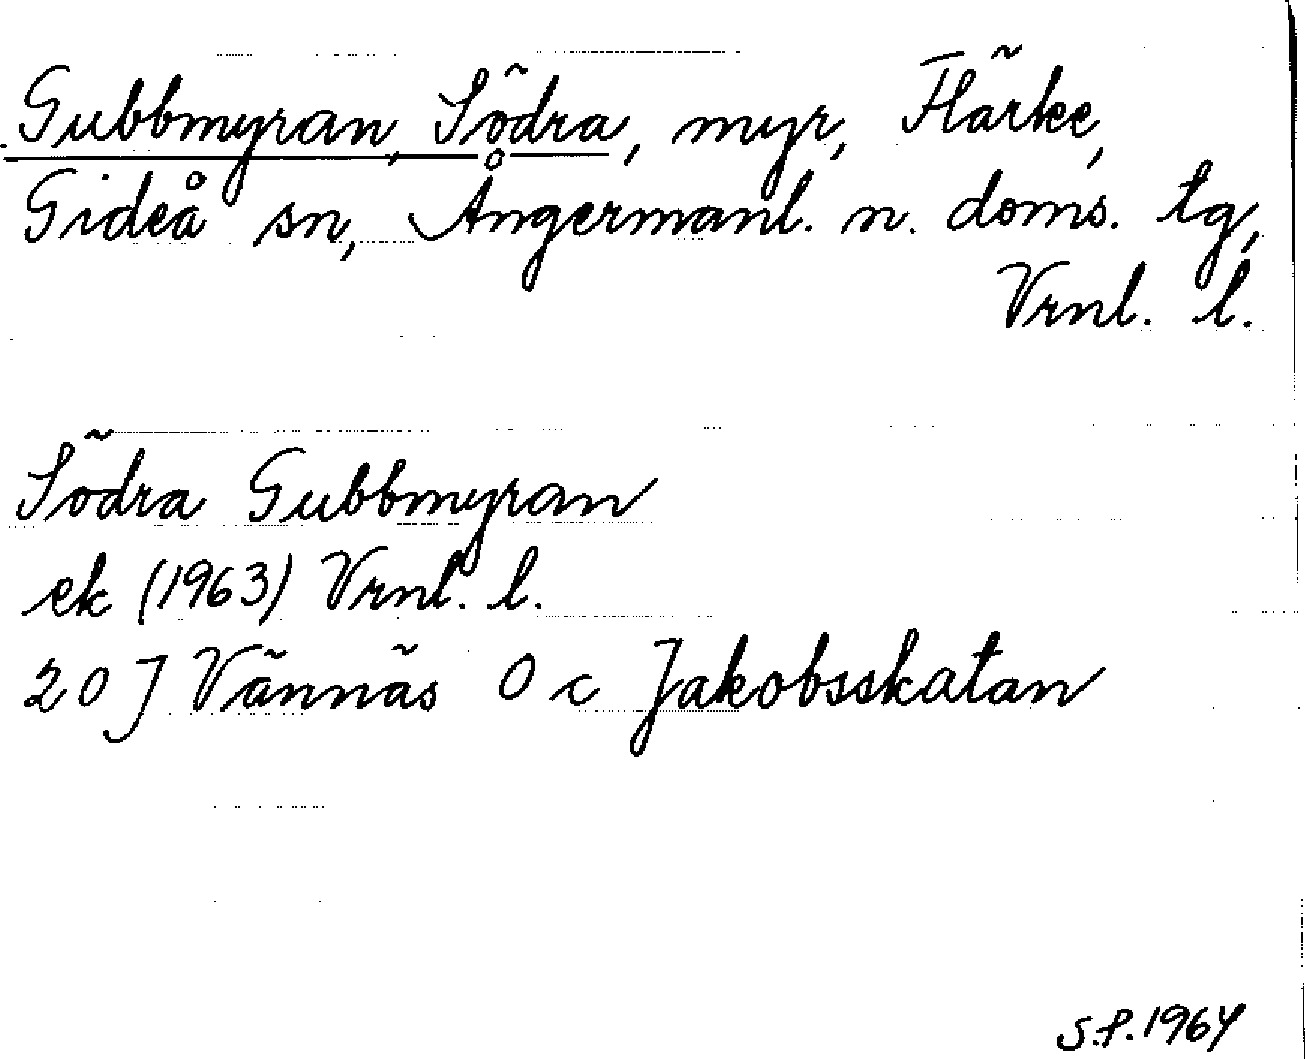 Gubbmyran, Södra, myr, Flärke,
Gideå sn, Ångermanl. n. doms. tg,
Vrnl. l.
Södra Gubbmyran
ek (1963) Vrnl. l.
20 J Vännäs O c Jakobsskatan
S.P. 1964